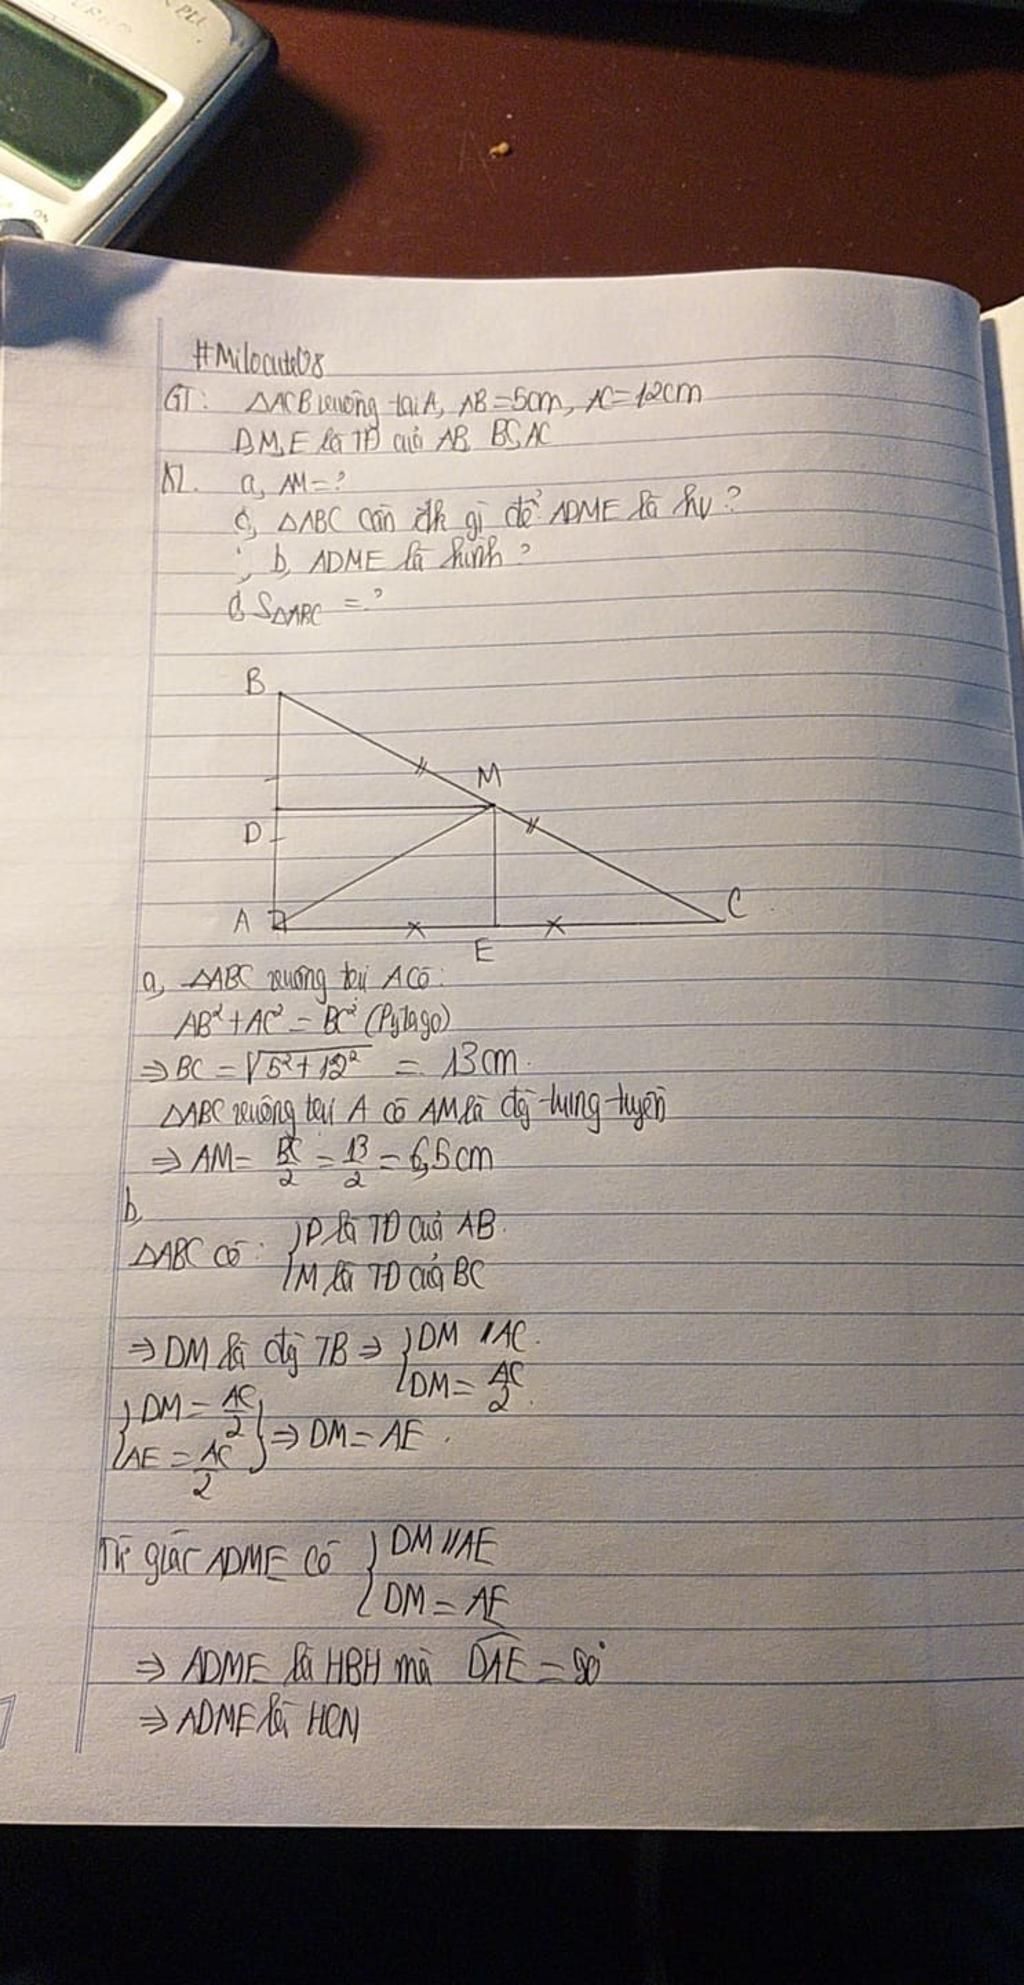 #Milocute08
GT: ΔACB vuông tại A, AB=5cm, AC=12cm
D,M,E là TĐ của AB, BC, AC
KL. a, AM=?
c, ΔABC cần đk gì để ADME là hv?
b, ADME là hình?
d, SΔABC =?
B
M
D
A
C
E
a, ΔABC vuông tại A có:
AB²+AC²=BC² (Pytago)
⇒BC=√5²+12² = 13cm.
ΔABC vuông tại A có AM là đg trung tuyến
⇒AM= BC/2 = 13/2 = 6,5cm
b,
ΔABC có: {D là TĐ của AB.
{M là TĐ của BC
⇒DM là đg TB⇒ {DM // AC.
{DM= AC/2.
{DM= AC/2
{AE = AC/2 }⇒ DM=AE.
Tứ giác ADME có {DM//AE
{DM = AE
⇒ ADME là HBH mà DAE = 90°
⇒ADME là HCN